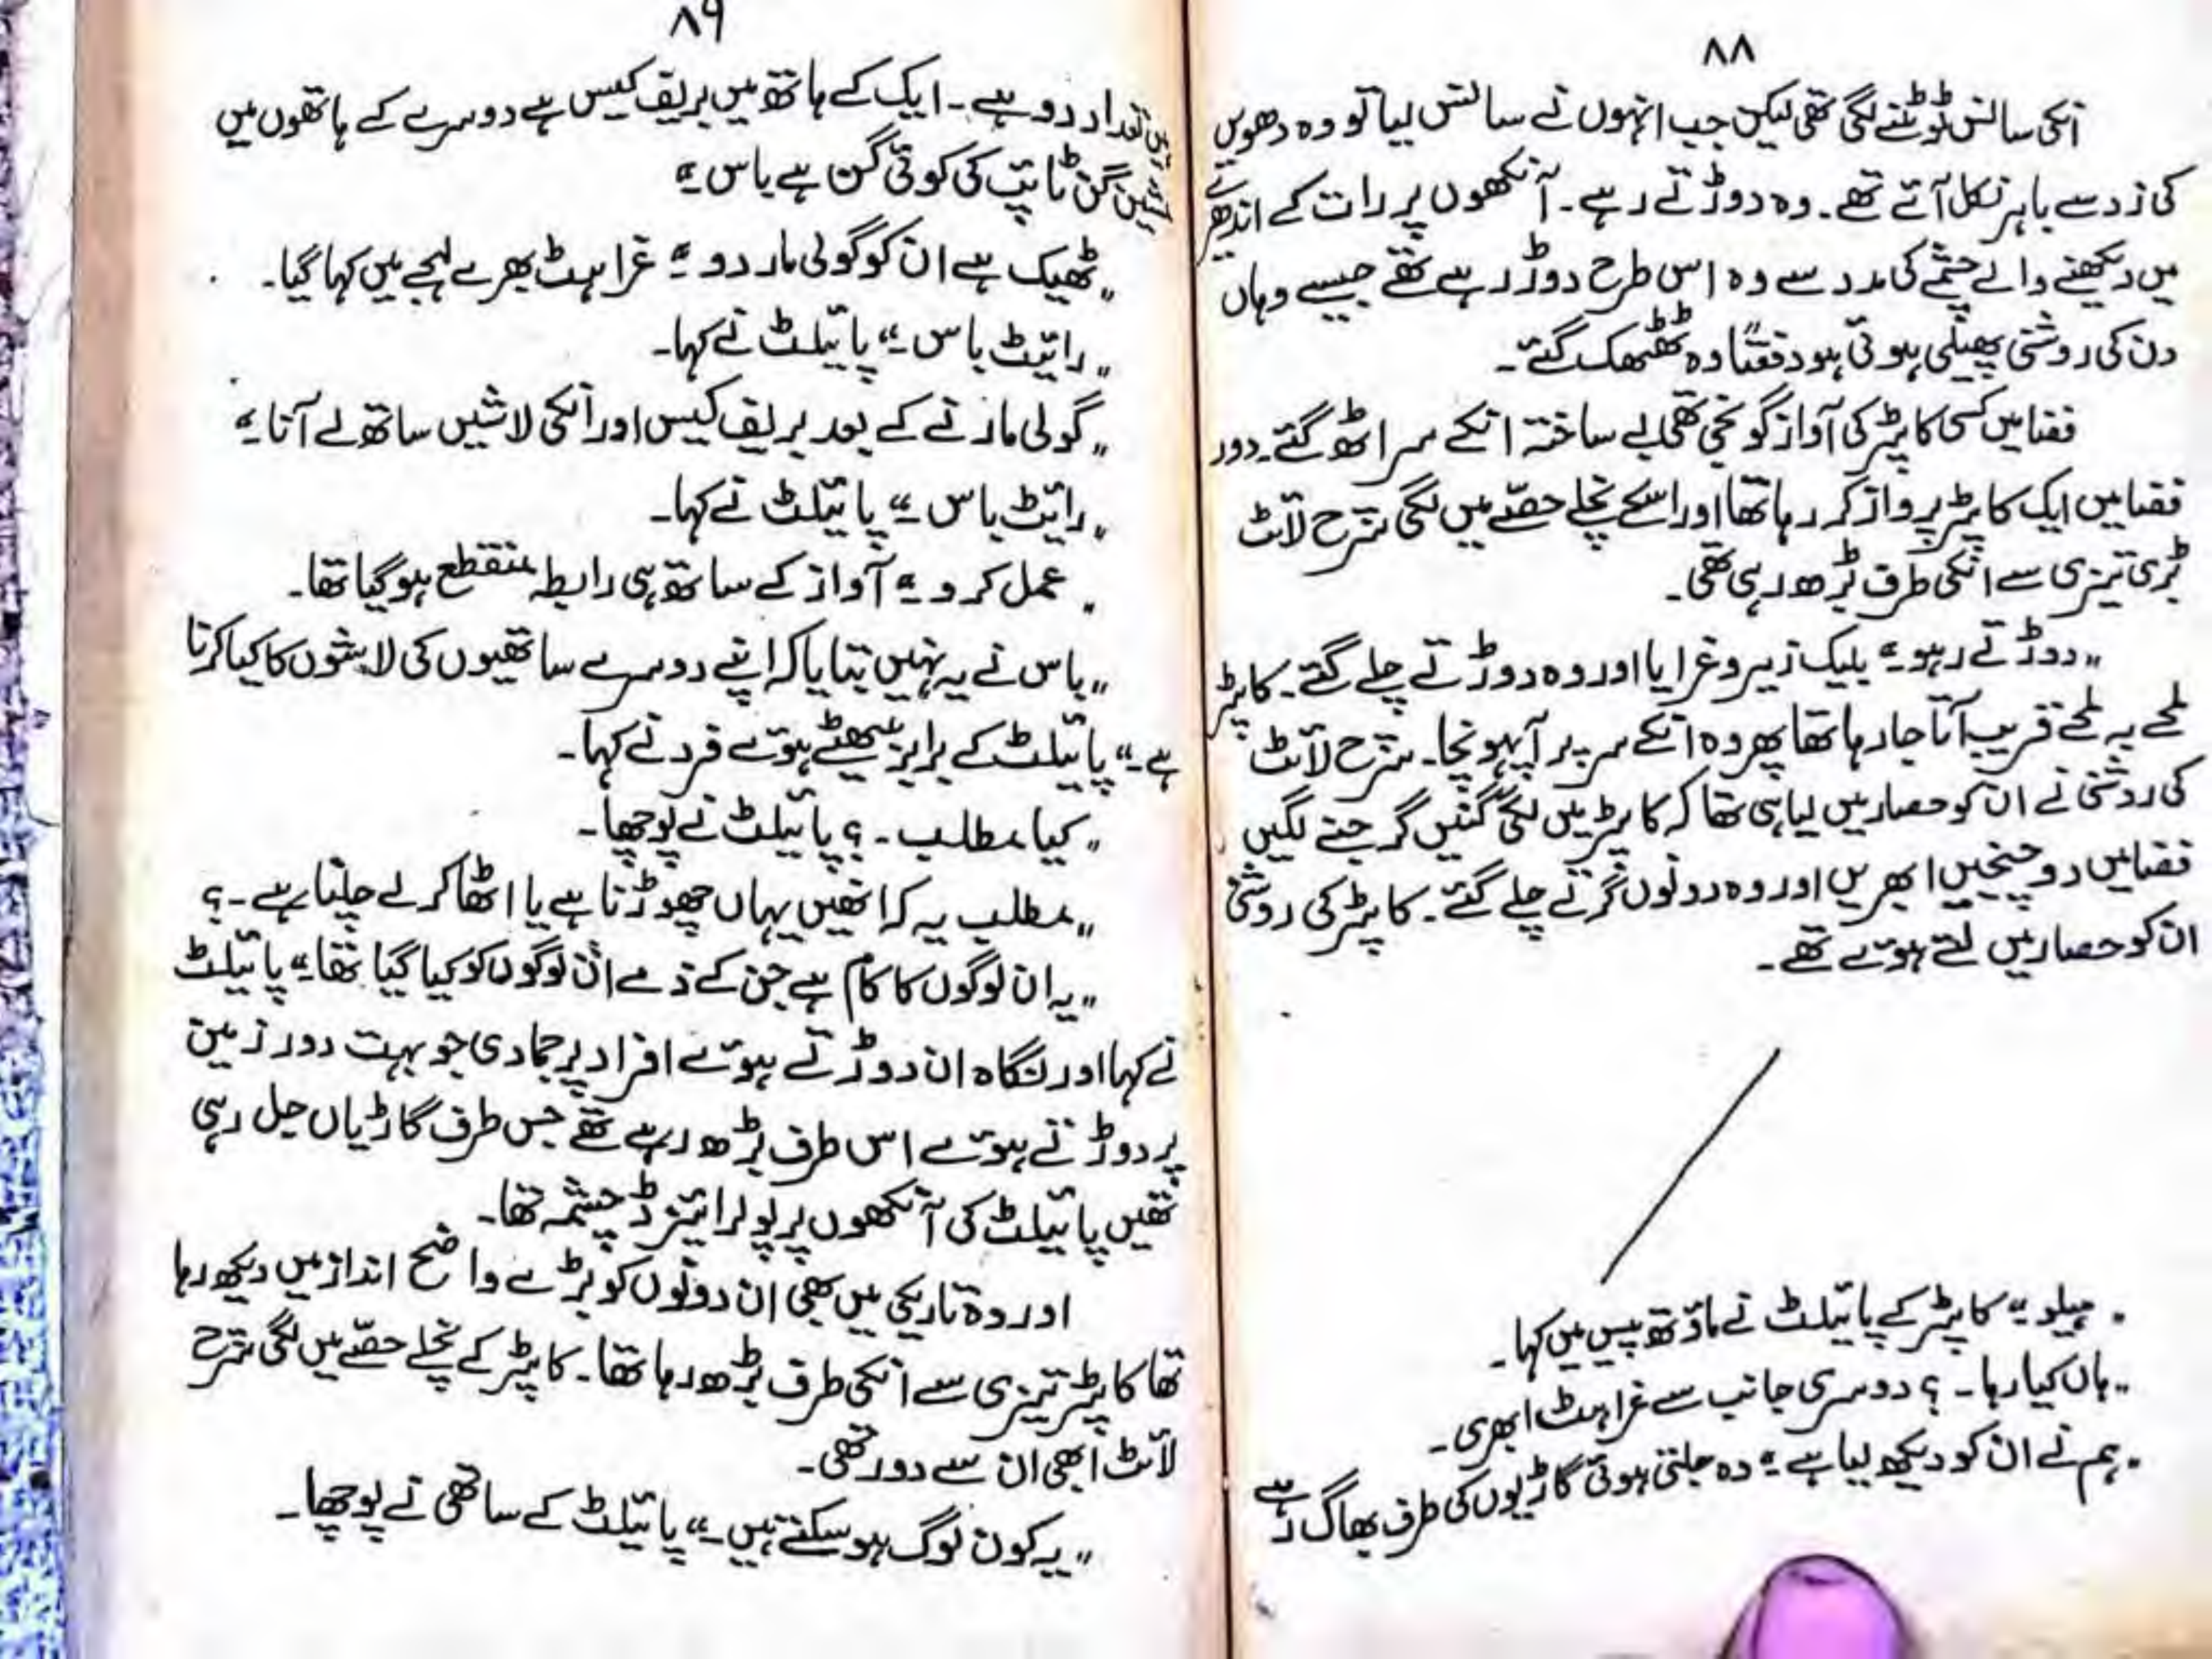 ۸۸
انکی سانس ٹوٹنے لگی تھی لیکن جب انہوں نے سانس لیا تو وہ دھویں
کی زد سے باہر نکل آئے تھے۔ وہ دوڑتے رہے۔ آنکھوں پر رات کے اندھیرے
میں دیکھنے والے چشمے کی مدد سے وہ اس طرح دوڑ رہے تھے جیسے وہاں
دن کی روشنی پھیلی ہوئی ہو دفعتًا وہ ٹھٹھک گئے۔
فضا میں کسی کاپٹر کی آواز گونجی تھی بے ساختہ انکے سر اٹھ گئے۔ دور
فضا میں ایک کاپٹر پرواز کر رہا تھا اور اسکے نچلے حصّے میں لگی سرح لائٹ
بڑی تیزی سے انکی طرف بڑھ رہی تھی۔
،،دوڑتے رہو۔“ بلیک زیرو غرایا اور وہ دوڑتے چلے گئے۔ کاپٹر
لمحے بہ لمحے قریب آتا جا رہا تھا پھر وہ انکے سر پر آپہونچا۔ سرح لائٹ
کی روشنی نے ان کو حصار میں لیا ہی تھا کہ کاپٹر میں لگی گنیں گرجنے لگیں
فضا میں دو چیخیں ابھریں اور وہ دونوں گرتے چلے گئے۔ کاپٹر کی روشنی
ان کو حصار میں لئے ہوئے تھے۔
،،ہیلو۔“ کاپٹر کے پائیلٹ نے ماؤتھ پیس میں کہا۔
،،ہاں کیا رہا۔؟ دوسری جانب سے غراہٹ ابھری۔
،،ہم نے ان کو دیکھ لیا ہے۔“ وہ جلتی ہوئی گاڑیوں کی طرف بھاگ رہے
۸۹
تعداد دو ہے۔ ایک کے ہاتھ میں بریف کیس ہے دوسرے کے ہاتھوں میں
گن ٹائپ کی کوئی گن ہے باس۔“
،،ٹھیک ہے ان کو گولی مار دو۔“ غراہٹ بھرے لہجے میں کہا گیا۔
،،رائیٹ باس۔“ پائیلٹ نے کہا۔
،،گولی مارنے کے بعد بریف کیس اور انکی لاشیں ساتھ لے آنا۔“
،،رائیٹ باس۔“ پائیلٹ نے کہا۔
،،عمل کرو۔“ آواز کے ساتھ ہی رابطہ منقطع ہو گیا تھا۔
،،باس نے یہ نہیں بتایا کہ اپنے دوسرے ساتھیوں کی لاشوں کا کیا کرنا
ہے۔“ پائیلٹ کے برابر بیٹھے ہوئے فرد نے کہا۔
،،کیا مطلب۔؟ پائیلٹ نے پوچھا۔
،،مطلب یہ کہ انھیں یہاں چھوڑنا ہے یا اٹھا کر لے چلنا ہے۔؟
،،یہ ان لوگوں کا کام ہے جن کے ذمے ان لوگوں کو کیا گیا تھا۔“ پائیلٹ
نے کہا اور نگاہ ان دوڑتے ہوئے افراد پر جما دی جو بہت دور زمین
پر دوڑتے ہوئے اس طرف بڑھ رہے تھے جس طرف گاڑیاں جل رہی
تھیں پائیلٹ کی آنکھوں پر پولرائیزڈ چشمہ تھا۔
اور وہ تاریکی میں بھی ان دونوں کو بڑے واضح انداز میں دیکھ رہا
تھا کاپٹر تیزی سے انکی طرف بڑھ رہا تھا۔ کاپٹر کے نچلے حصّے میں لگی سرح
لائٹ ابھی ان سے دور تھی۔
،،یہ کون لوگ ہو سکتے ہیں۔“ پائیلٹ کے ساتھی نے پوچھا۔